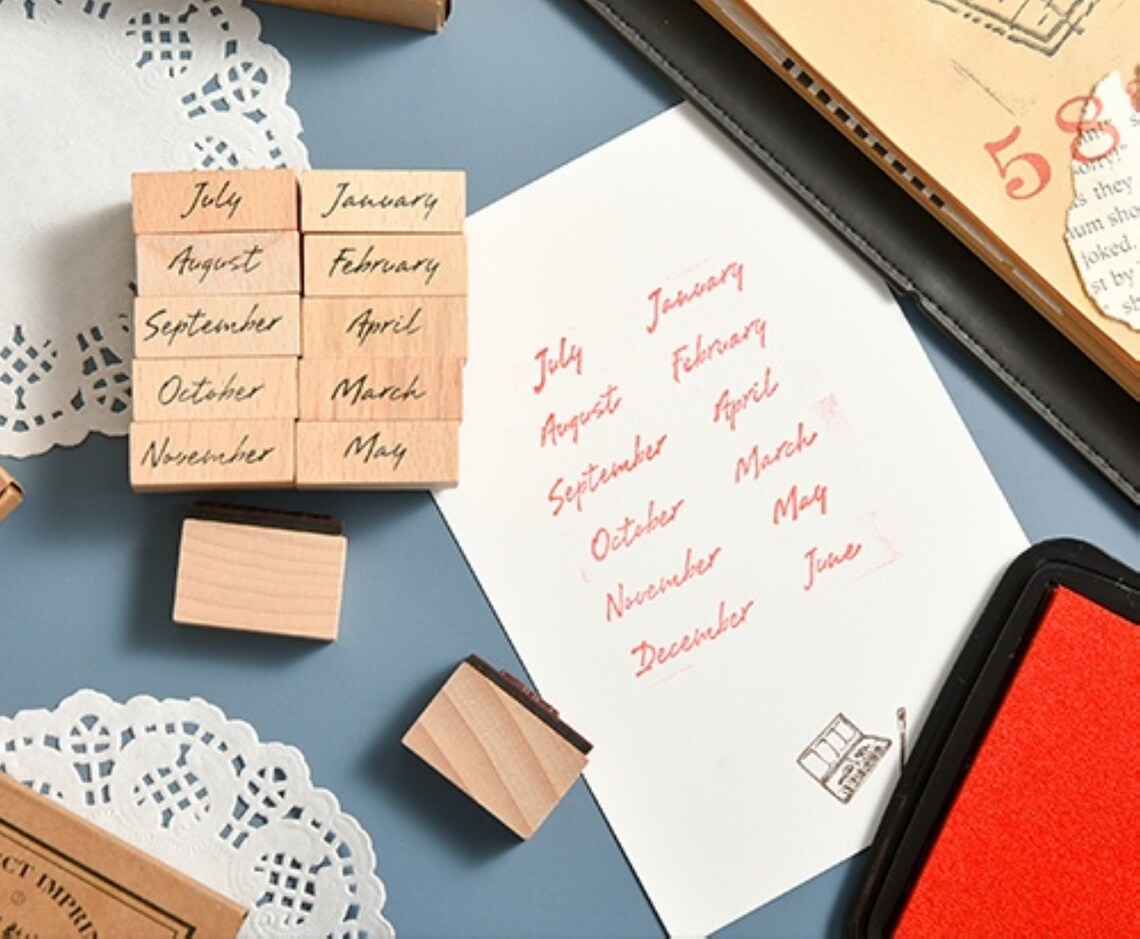 July
January
August
February
September
April
October
March
November
May
January
July
February
August
April
September
March
October
May
November
June
December
58
sorry!"
they
joked,
st by
CT IMPRIN